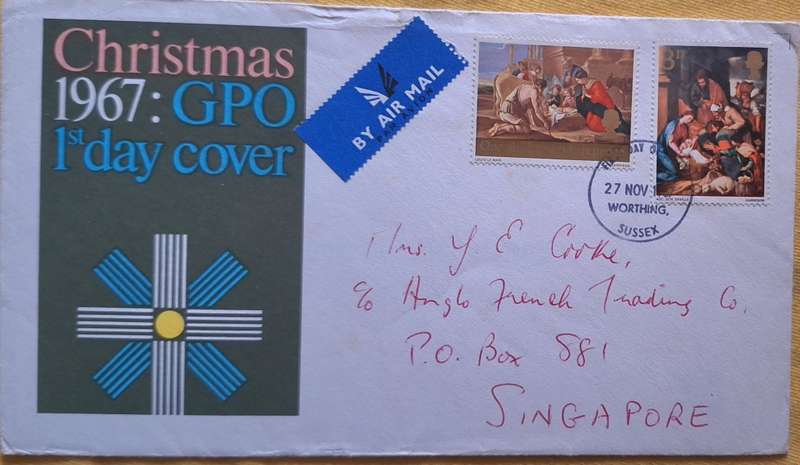 Christmas
1967: GPO
1st day cover
BY AIR MAIL
PAR AVION
LOUIS LE NAIN
FIRST DAY OF
27 NOV 1
WORTHING,
SUSSEX
Mrs. Y E Cooke,
c/o Anglo French Trading Co.
P.O. Box 581
SINGAPORE